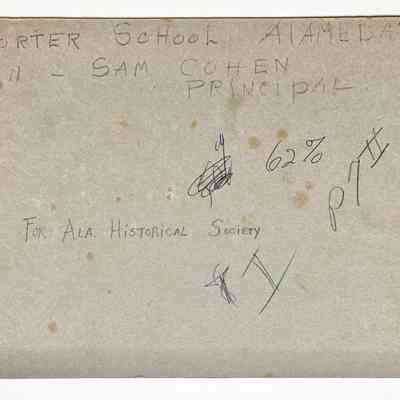 ORTER SCHOOL ALAMEDA
- SAM COHEN
PRINCIPAL
62%
P7
FOR ALA. HISTORICAL SOCIETY